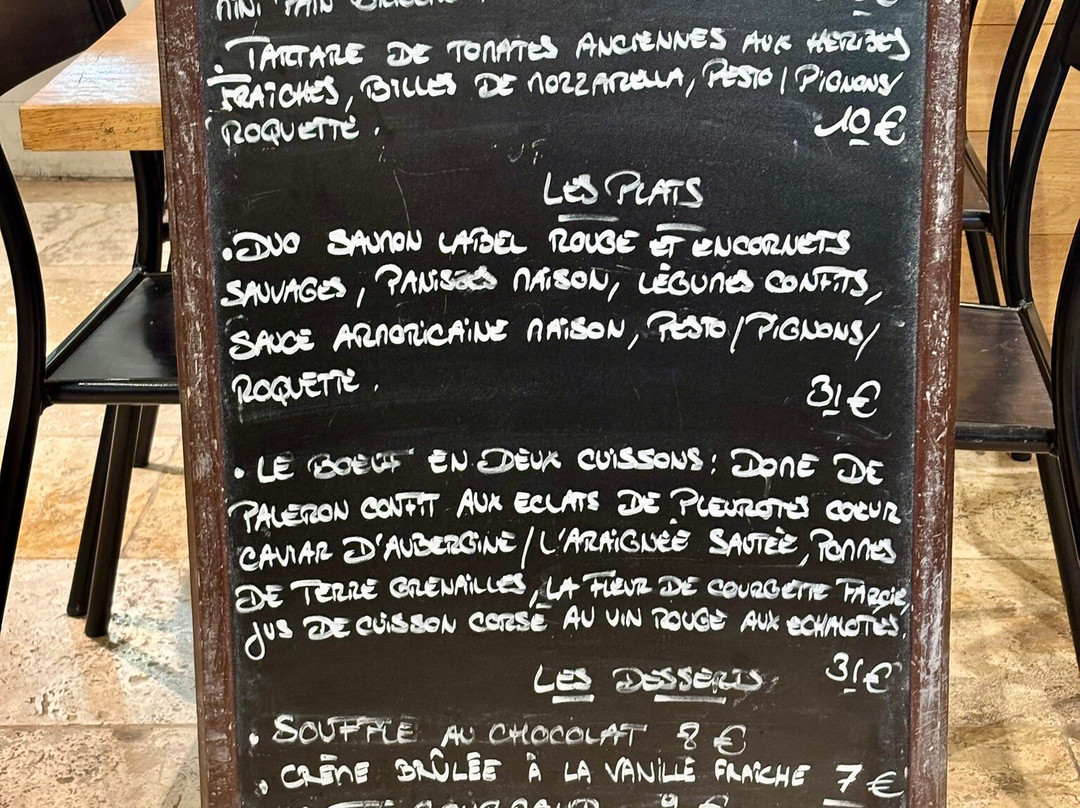 MINI PAIN
. TARTARE DE TOMATES ANCIENNES AUX HERBES
FRAÎCHES, BILLES DE MOZZARELLA, PESTO / PIGNONS/
ROQUETTE . 10 €
LES PLATS
. DUO SAUMON LABEL ROUGE ET ENCORNETS
SAUVAGES, PANISSES MAISON, LÉGUMES CONFITS,
SAUCE ARMORICAINE MAISON, PESTO/PIGNONS/
ROQUETTE . 31 €
. LE BOEUF EN DEUX CUISSONS : DOME DE
PALERON CONFIT AUX ECLATS DE PLEUROTES COEUR
CAVIAR D'AUBERGINE / L'ARAIGNÉE SAUTÉE, POMMES
DE TERRE GRENAILLES, LA FLEUR DE COURGETTE FARCIE,
JUS DE CUISSON CORSÉ AU VIN ROUGE AUX ECHALOTES.
31 €
LES DESSERTS
. SOUFFLÉ AU CHOCOLAT 8 €
. CRÈME BRÛLÉE À LA VANILLE FRAICHE 7 €
GOURMAND 9 €